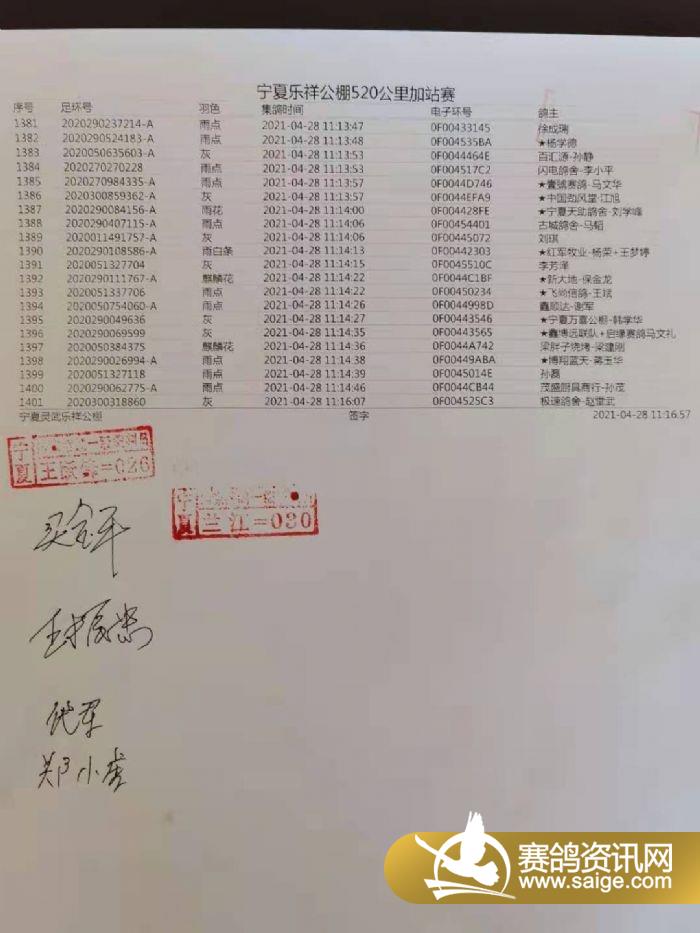 宁夏乐祥公棚520公里加站赛
序号 足环号 羽色 集鸽时间 电子环号 鸽主
1381 2020290237214-A 雨点 2021-04-28 11:13:47 0F00433145 徐成瑞
1382 2020290524183-A 雨点 2021-04-28 11:13:48 0F004535BA ★杨学德
1383 2020050635603-A 灰 2021-04-28 11:13:53 0F0044464E 百汇源-孙静
1384 2020270270228 雨点 2021-04-28 11:13:53 0F004517C2 闪电鸽舍-李小平
1385 2020270984335-A 雨点 2021-04-28 11:13:57 0F0044D746 ★壹號赛鸽-马文华
1386 2020300859362-A 灰 2021-04-28 11:13:57 0F0044EFA9 ★中国劲风堂-江旭
1387 2020290084156-A 雨花 2021-04-28 11:14:00 0F004428FE ★宁夏天助鸽舍-刘学峰
1388 2020290407115-A 雨点 2021-04-28 11:14:06 0F00454401 古城鸽舍-马韬
1389 2020011491757-A 灰 2021-04-28 11:14:06 0F00445072 刘琪
1390 2020290108586-A 雨白条 2021-04-28 11:14:13 0F00442303 ★红军牧业-杨荣+王梦婷
1391 2020051327704 灰 2021-04-28 11:14:15 0F0045510C 李芳泽
1392 2020290111767-A 麒麟花 2021-04-28 11:14:22 0F0044C1BF ★新大地-保金龙
1393 2020051337706 雨点 2021-04-28 11:14:22 0F00450234 ★飞尚信鸽-王斌
1394 2020050754060-A 雨点 2021-04-28 11:14:26 0F0044998D 鑫顺达-谢军
1395 2020290049636 灰 2021-04-28 11:14:27 0F00443546 ★宁夏万喜公棚-韩学华
1396 2020290069599 灰 2021-04-28 11:14:35 0F00443565 ★鑫博远联队+启缘赛鸽马文礼
1397 2020050384375 麒麟花 2021-04-28 11:14:36 0F0044A742 梁胖子烧烤-梁建刚
1398 2020290026994-A 雨点 2021-04-28 11:14:38 0F00449ABA ★博翔蓝天-蒋玉华
1399 2020051327118 雨点 2021-04-28 11:14:39 0F0045014E 孙磊
1400 2020290062775-A 雨点 2021-04-28 11:14:46 0F0044CB44 茂盛厨具商行-孙茂
1401 2020300318860 灰 2021-04-28 11:16:07 0F004525C3 极速鸽舍-赵堂武
宁夏灵武乐祥公棚 签字 2021-04-28 11:16:57
宁夏
=026
宁夏
兰江=030
郑小虎
赛鸽资讯网
www.saige.com